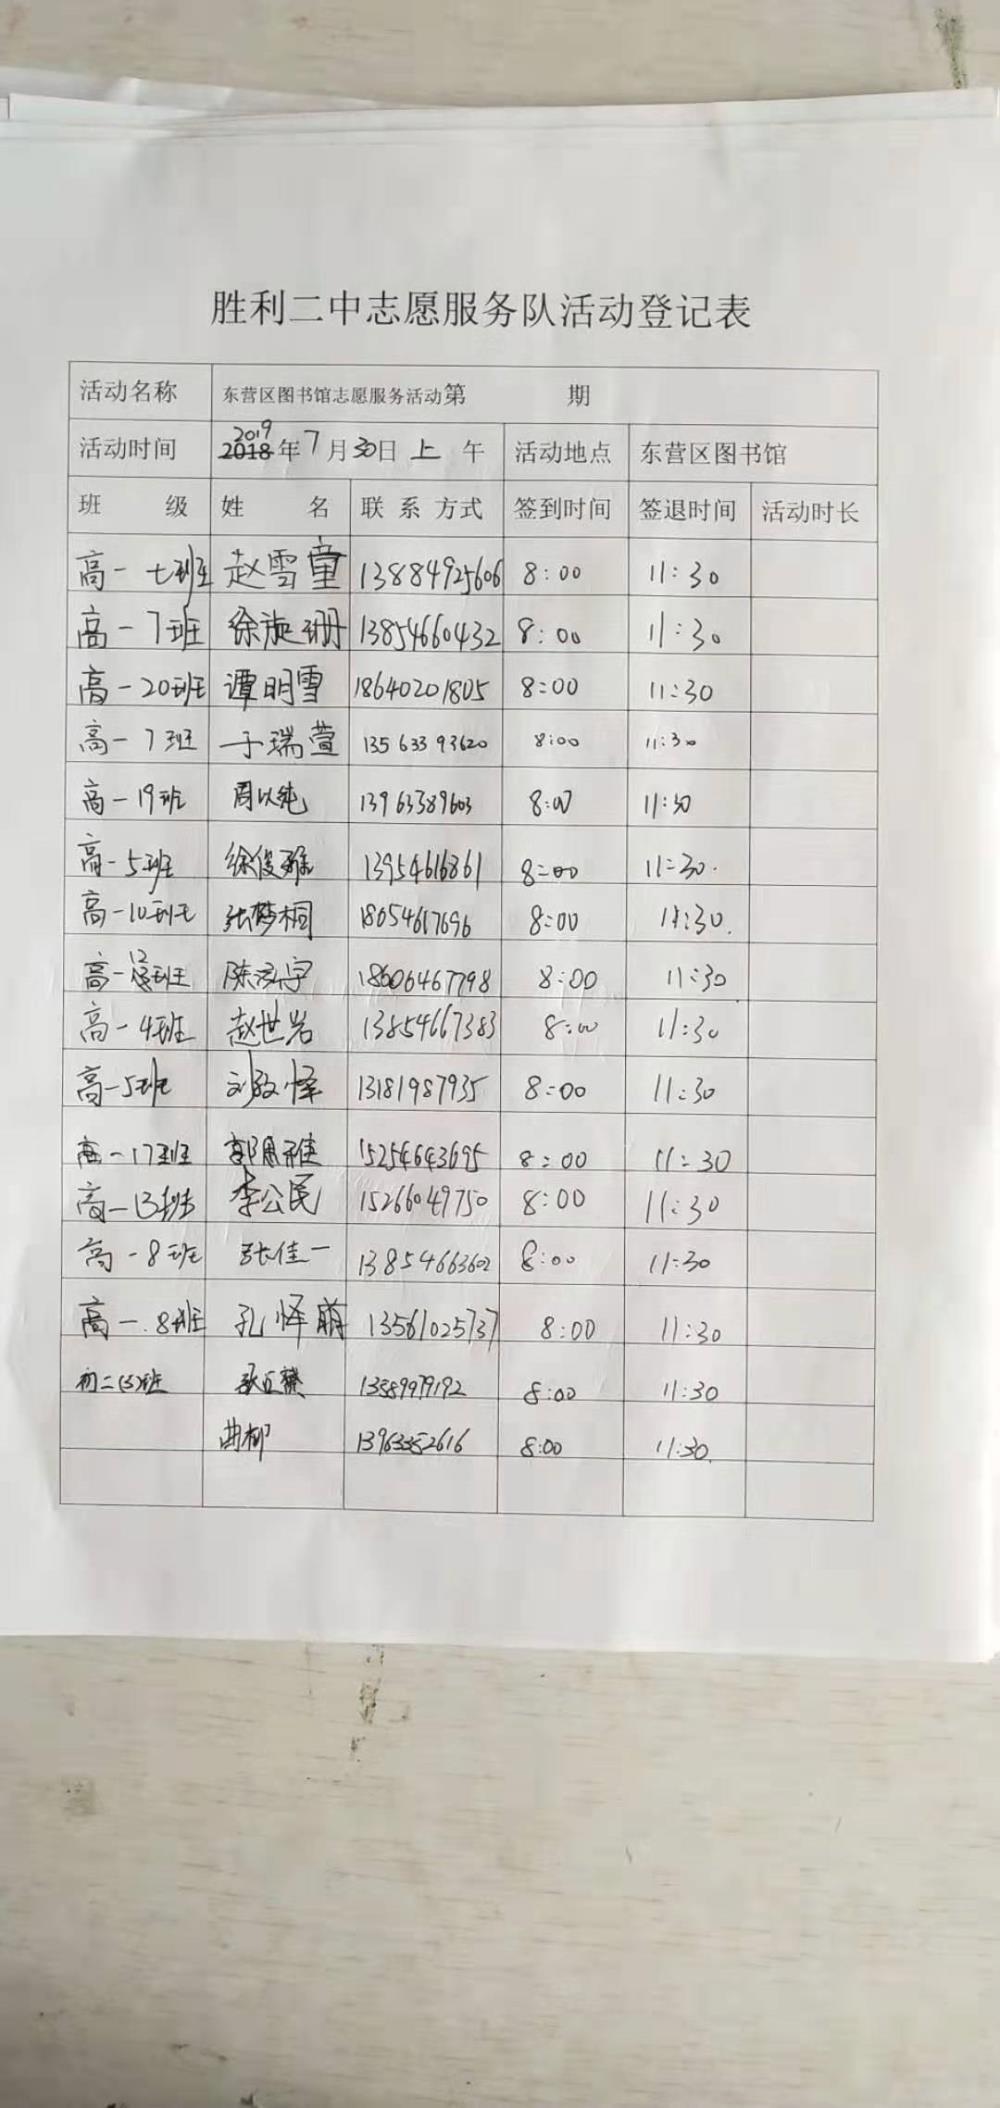 胜利二中志愿服务队活动登记表
活动名称 东营区图书馆志愿服务活动第 期
活动时间 2019 2018年7月30日上午 活动地点 东营区图书馆
班 级 姓 名 联系方式 签到时间 签退时间 活动时长
高一七班 赵雪童 13884925606 8:00 11:30
高一7班 徐漩珊 13854660432 8:00 11:30
高一20班 谭明雪 18640201805 8:00 11:30
高一7班 于瑞萱 13563393620 8:00 11:30
高一19班 周以纯 13963389603 8:00 11:30
高一5班 徐俊雅 13954616861 8:00 11:30.
高一10班 张梦桐 18054617696 8:00 11:30.
高一12班 陈泓宇 18606467798 8:00 11:30
高一4班 赵世岩 13854667383 8:00 11:30
高一5班 刘致怿 13181987935 8:00 11:30
高一17班 郭思 15254643695 8:00 11:30
高一13班 李公民 15266049750 8:00 11:30
高一8班 张佳一 13854663602 8:00 11:30
高一.8班 孔怿萌 13561025737 8:00 11:30
初二(3)班 13589979192 8:00 11:30
曲柳 13963352616 8:00 11:30.